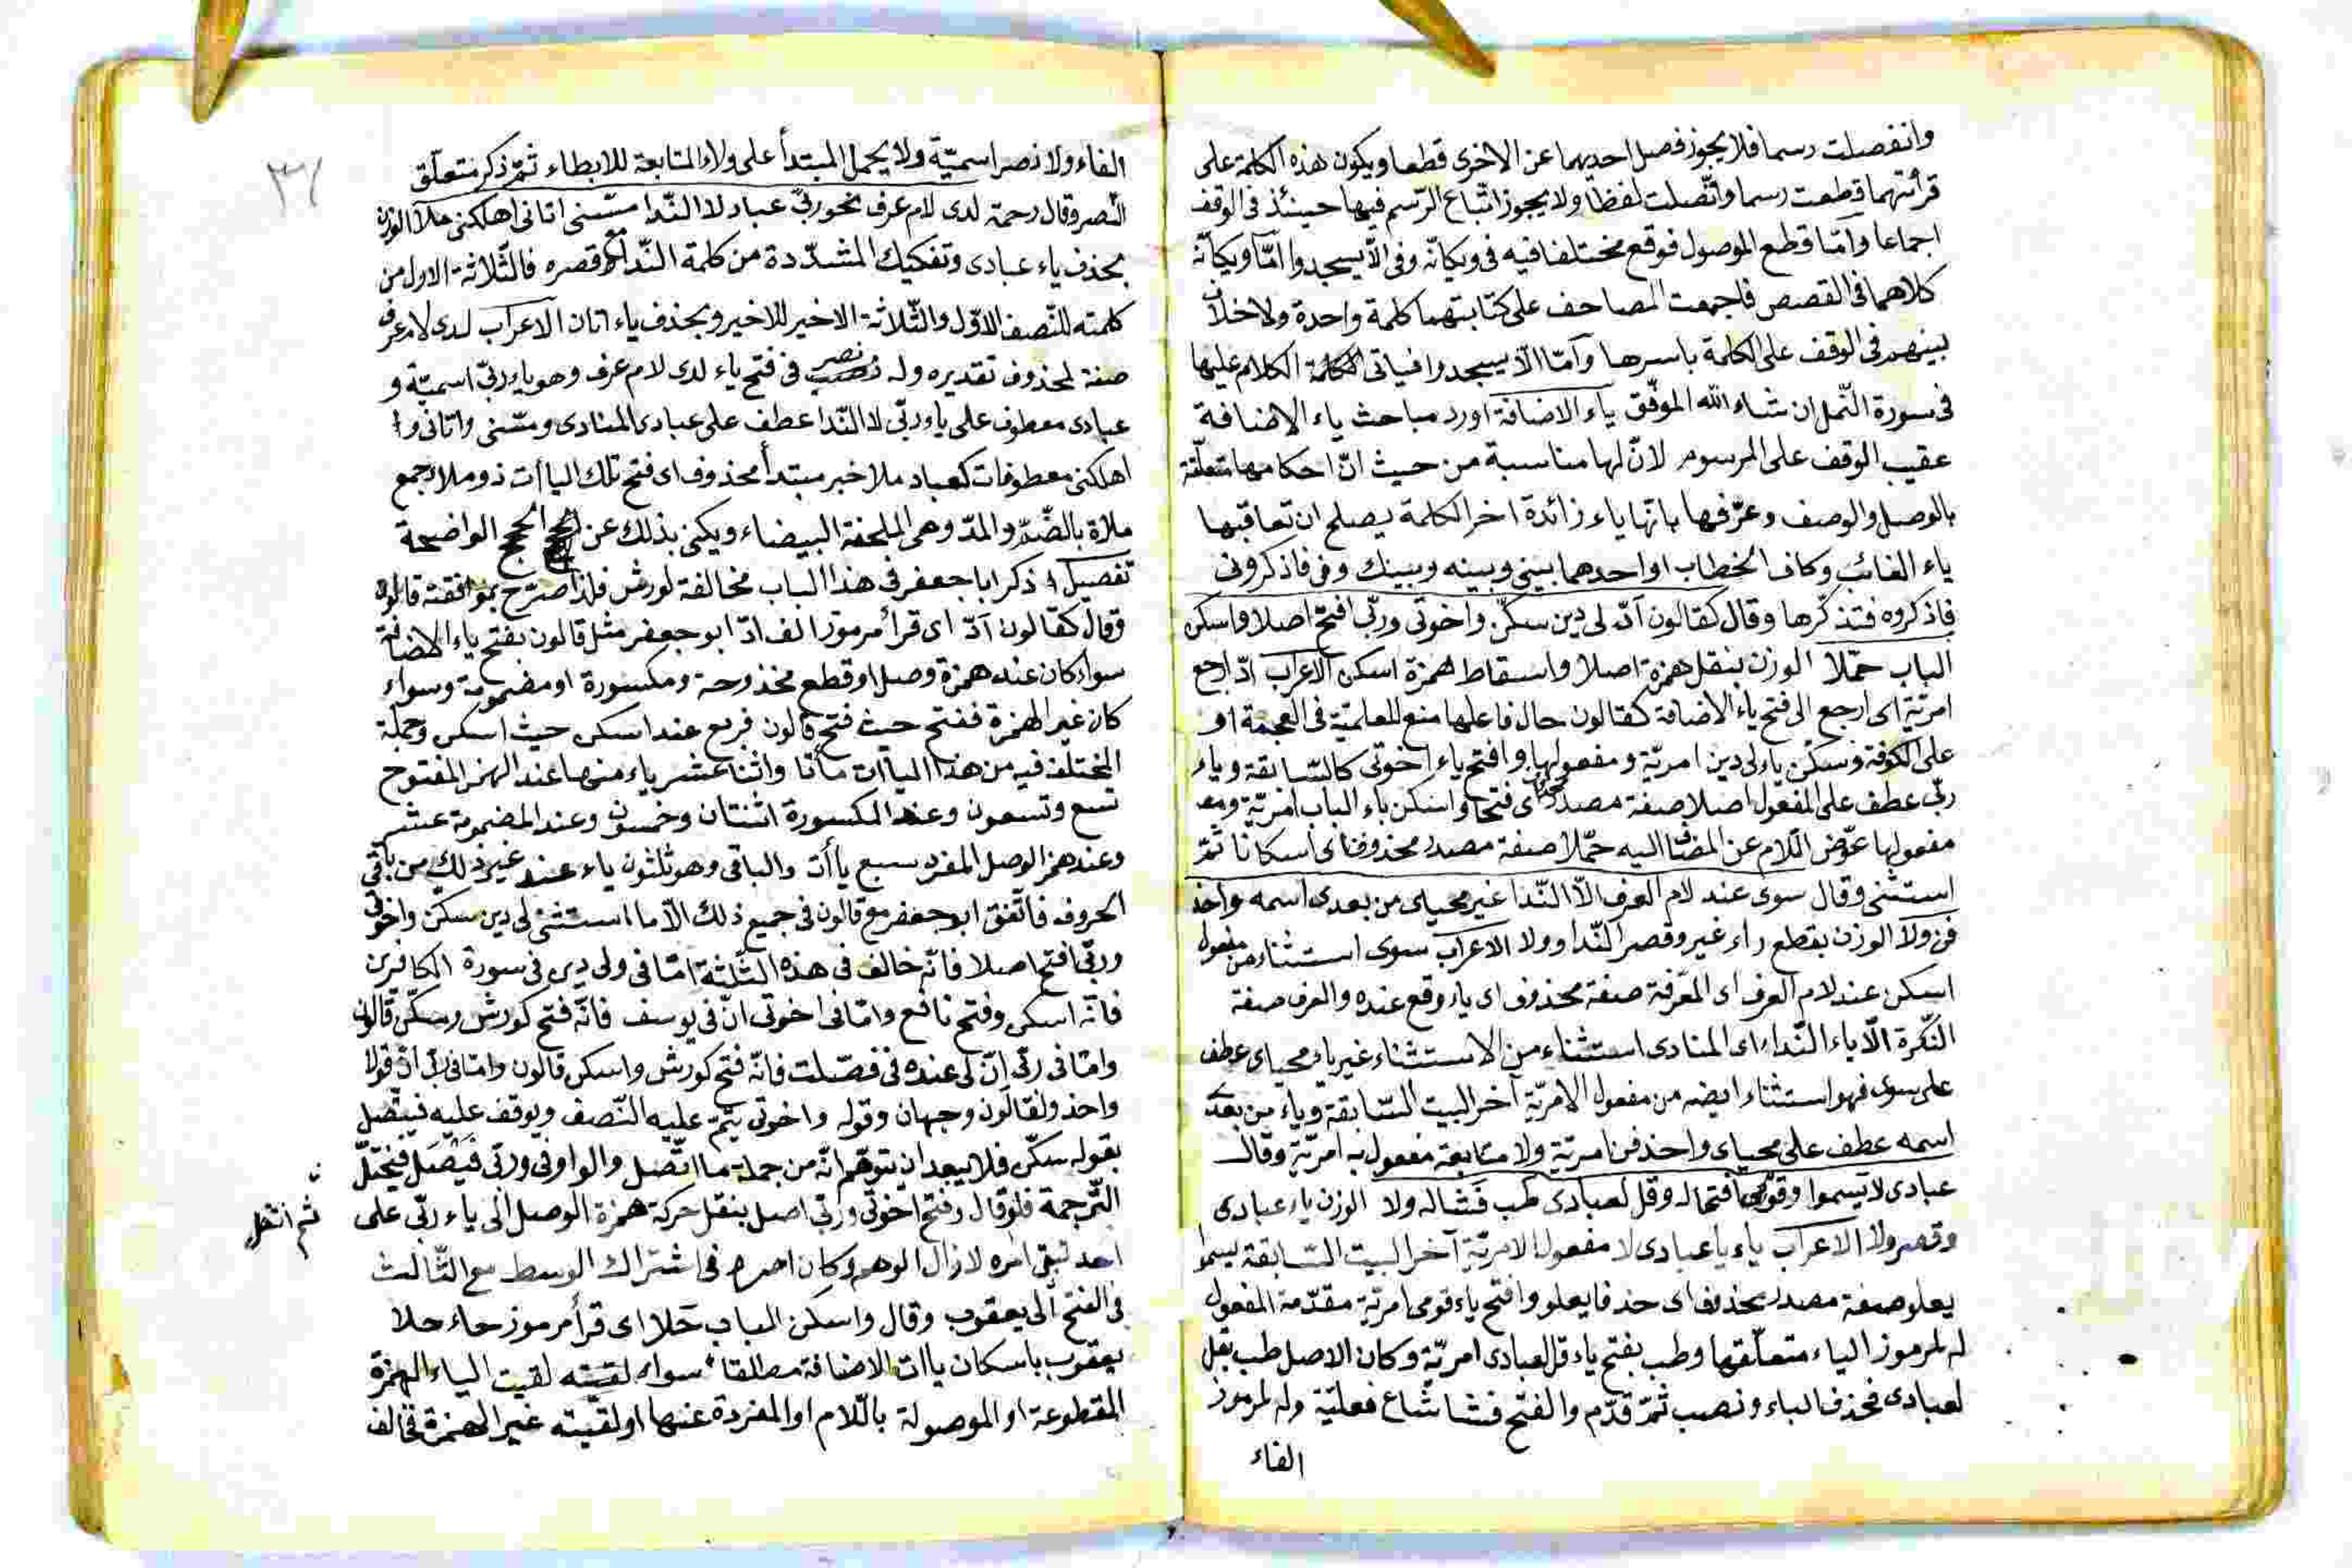 وانفصلت رسما فلا يجوز فصل احديهما عن الاخرى قطعا ويكون هذه الكلمة على
قرأتهما قطعت رسما واتّصلت لفظا ولا يجوز اتّباع الرّسم فيها حينئذ فى الوقف
اجماعا وامّا قطع الموصول فوقع مختلفا فيه فى ويكانّه وفى الّا يسجدوا امّا ويكانّه
كلاهما فى القصص فاجمعت المصاحف على كتابتهما كلمة واحدة ولا خلاف
بينهم فى الوقف على الكلمة باسرها وامّا الّا يسجدوا فياتى الكلام عليها
فى سورة النّمل ان شاء الله الموفّق ياء الاضافة اورد مباحث ياء الاضافة
عقيب الوقف على المرسوم لانّ لها مناسبة من حيث انّ احكامها متعلّقة
بالوصل والوصف وعرّفها بانّها ياء زائدة اخر الكلمة يصلح ان تعاقبها
ياء الغائب وكاف الخطاب او احدهما بينى وبينه وبينك وفى فاذكرونى
فاذكروه فتذكّرها وقال كقالون اد لى دين سكّن واخوتى وربّى افتح اصلا واسكن
الباب حمّلا الوزن بنقل همزة اصلا واسقاط همزة اسكن الاعراب ادّ ارجع
امريّة اى ارجع الى فتح ياء الاضافة كقالون حال فاعلها منع للعلميّة فى العجمة او
على الكوفة وسكّن ياء لى دين امريّة ومفعولها وافتح ياء اخوتى كالسّابقة وياء
ربّى عطف على المفعول اصلا صفة مصدر اى فتحا واسكن باء الباب امريّة ومع
مفعولها عوّض اللّام عن المضا اليه حمّلا صفة مصدر محذوف اى اسكانا ثمّ
استثنى وقال سوى عند لام العرف الّا النّدا غير محياى من بعدى اسمه واحذ
فن ولا الوزن بقطع راء غير وقصر النّدا وولا الاعراب سوى استثناء من مفعول
اسكن عند لام العرف اى المعرفة صفة محذوف اى ياء وقع عنده والعرف صفة
النّكرة الّا ياء النّداء اى المنادى استثناء من الاستثناء غير ياء محياى عطف
على سوى فهو استثناء ايضه من مفعول الامريّة آخر البيت السّابقة وياء من بعد
اسمه عطف على محياى واحذفن امريّة ولا متابعة مفعول به امريّة وقال
عبادى لا يسموا وقومى افتحا له وقل لعبادى طب فشا له ولا الوزن ياء عبادى
وقصر ولا الاعراب ياء يا عبادى لا مفعول الامريّة آخر البيت السّابقة يسموا
يعلو صفة مصدر بحذف اى حذفا يعلو وافتح ياء قومى امريّة مقدّمة المفعول
له لمرموز الياء متعلّقها وطب بفتح ياء قل لعبادى امريّة وكان الاصل طب بقل
لعبادى فحذف الباء ونصب ثمّ قدّم والفتح فشا شاع فعليّة وله لمرموز
الفاء
٣١
الفاء ولا نصر اسميّة ولا يحمل المبتدأ على ولاء المتابعة للابطاء ثمّ ذكر متعلّق
النّصر وقال رحمة لدى لام عرف نحو ربّى عباد لا النّدا مسّنى اتانى اهلكنى ملا الوزن
بحذف ياء عبادى وتفكيك المشدّدة من كلمة النّدا وقصره فالثّلاثة الاول من
كلمته للنّصف الاوّل والثّلاثة الاخير للاخير وبحذف ياء اتان الاعراب لدى لام عرف
صفة لمحذوف تقديره وله نصر فى فتح ياء لدى لام عرف وهو ياء ربّى اسميّة و
عبادى معطوف على ياء وربّى لا النّدا عطف على عبادى المنادى ومسّنى واتانى و
اهلكنى معطوفات كعباد ملا خبر مبتدأ محذوف اى فتح تلك اليائات ذو ملا جمع
ملاة بالضّم والمدّ وهى الملحفة البيضاء ويكنى بذلك عن الحجج الواضحة
تفصيل ذكر ابا جعفر فى هذا الباب مخالفة لورش فلذا صرّح بموافقة قالون
وقال كقالون ادّ اى قرأ مرموز الف ادّ ابو جعفر مثل قالون بفتح ياء الاضافة
سواء كان عند همزة وصل او قطع مفتوحة ومكسورة او مضمومة وسواء
كان غير الهمزة ففتح حيث فتح قالون فربع عند اسكن حيث اسكن وجملة
المختلف فيه من هذا اليائات مأتا واثنا عشر ياء منها عند الهمز المفتوح
تسع وتسعون وعند المكسورة اثنتان وخمسون وعند المضمومة عشر
وعند همز الوصل المفرد سبع يأات والباقى وهو ثلثون ياء عند غير ذلك من باقى
الحروف فاتّفق ابو جعفر مع قالون فى جميع ذلك الّا ما استثنى لى دين سكّن واخوتى
وربّى افتح اصلا فانّه خالف فى هذه الثّلثة امّا فى ولى دين فى سورة الكافرين
فانّه اسكن وفتح نافع وامّا فى اخوتى انّ فى يوسف فانّه فتح كورش وسكّن قالون
وامّا فى ربّى انّ لى عنده فى فصّلت فانّه فتح كورش واسكن قالون وامّا فى ربّى ان قولا
واحد ولقالون وجهان وقوله واخوتى يتمّ عليه النّصف ويوقف عليه فيتّصل
بقوله سكّن فلا يبعد ان يتوهّم انّه من جملة ما اتّصل والواو فى وربّى فيصل فيختلّ
التّرجمة فلو قال وفتح اخوتى وربّى اصل بنقل حركة همزة الوصل الى ياء ربّى على
ثم انتقل
احد تبقى امره لازال الوهم وكان اصرح فى اشتراك الوسط مع الثّالث
فى الفتح الى يعقوب وقال واسكن الباب حلا اى قرأ مرموز حاء حلا
يعقوب باسكان ياات الاضافة مطلقا سواء لقيت الياء الهمزة
المقطوعة او الموصولة باللّام او المفردة عنها او لقيته غير الهمزة فخالف